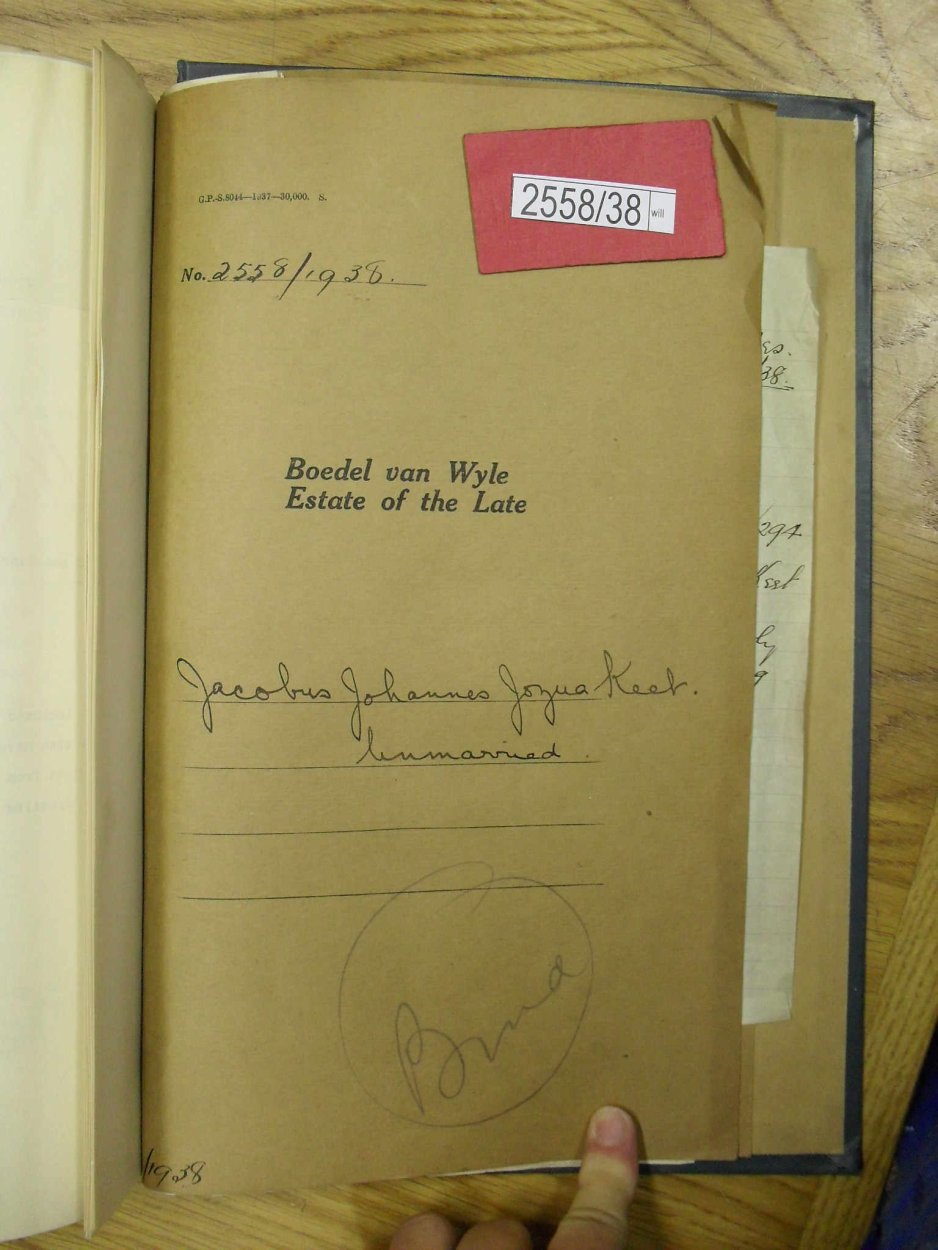 2558/38 will
G.P.-S.8044—1937—30,000. S.
No. 2558/1938.
Boedel van Wyle
Estate of the Late
Jacobus Johannes Jozua Keet.
Unmarried.
/1938
38.
294
Keet